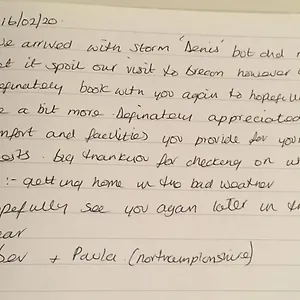 16/02/20.
we arrived with storm 'Denis' but did n
et it spoil our visit to brecon however
efinately book with you again to hopefull
e a bit more Definately appreciated
mfort and facilities you provide for your
ests. big thankyou for checking on u
:- getting home in the bad weather
pefully see you again later in th
ear
bev + Paula (northamptonshire)